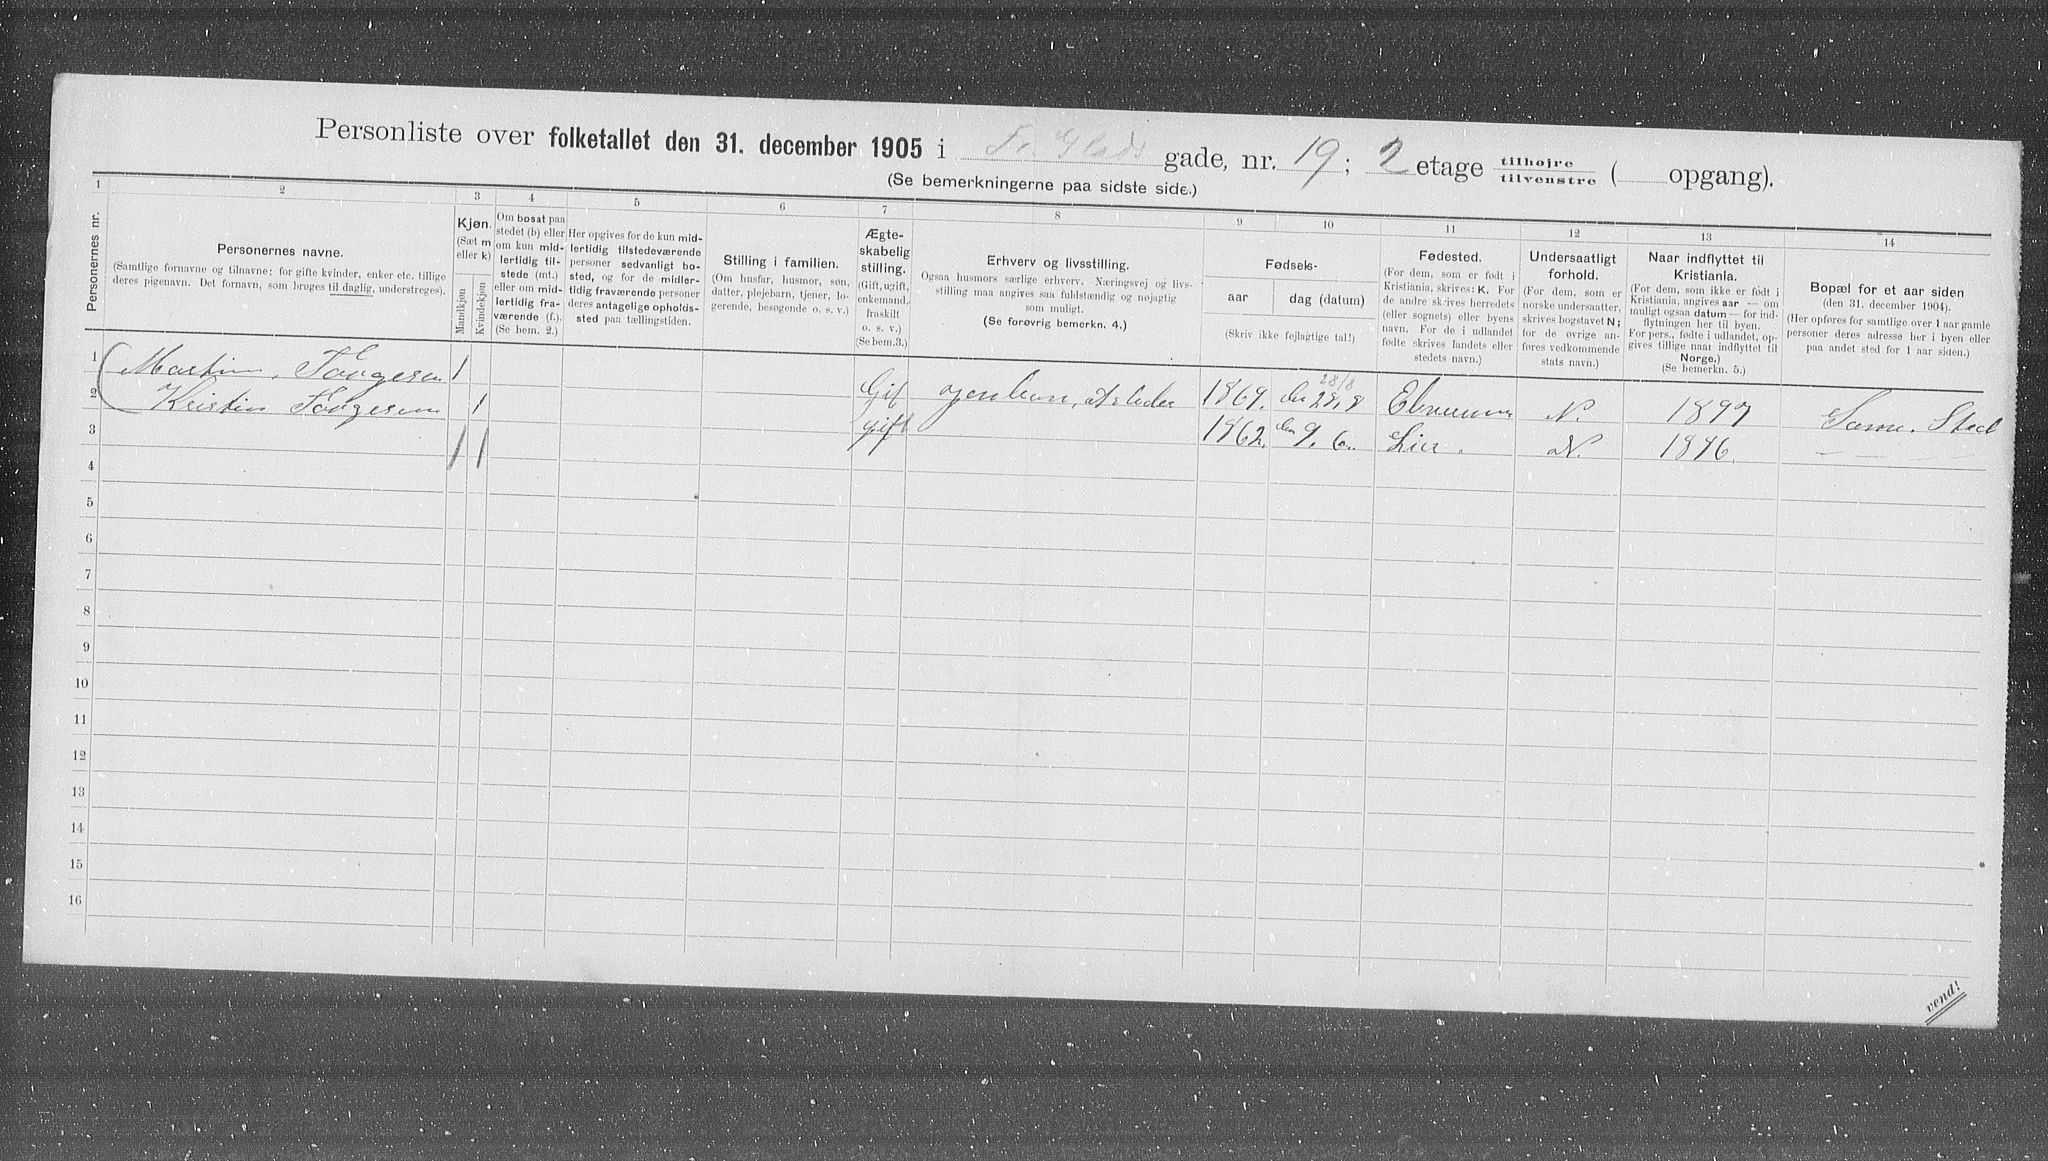 Personliste over folketallet den 31. december 1905 i Fr. Glads gade, nr. 19; 2 etage tilhøjre / tilvenstre ( opgang).
(Se bemerkningerne paa sidste side.)
1 2 3 4 5 6 7 8 9 10 11 12 13 14
Personernes nr.
Personernes navne.
(Samtlige fornavne og tilnavne; for gifte kvinder, enker etc. tillige
deres pigenavn. Det fornavn, som bruges til daglig, understreges).
Kjøn.
(Sæt m
eller k)
Mandkjøn
Kvindekjøn
Om bosat paa
stedet (b) eller
om kun mid-
lertidig til-
stede (mt.)
eller om mid-
lertidig fra-
værende (f.).
(Se bem. 2.)
Her opgives for de kun mid-
lertidig tilstedeværende
personer sedvanligt bo-
sted, og for de midler-
tidig fraværende personer
deres antagelige opholds-
sted paa tællingstiden.
Stilling i familien.
(Om husfar, husmor, søn,
datter, plejebarn, tjener, lo-
gerende, besøgende o. s. v.)
Ægte-
skabelig
stilling.
(Gift, ugift,
enkemand,
fraskilt
o. s. v.)
(Se bem.3.)
Erhverv og livsstilling.
Ogsaa husmors særlige erhverv. Næringsvej og livs-
stilling maa angives saa fuldstændig og nøjagtig
som muligt.
(Se forøvrig bemerkn. 4.)
Fødsels-
aar dag (datum)
(Skriv ikke fejlagtige tal!)
Fødested.
(For dem, som er født i
Kristiania, skrives: K. For
de andre skrives herredets
(eller sognets) eller byens
navn. For de i udlandet
fødte skrives landets eller
stedets navn.)
Undersaatligt
forhold.
(For dem, som er
norske undersaatter,
skrives bogstavet N;
for de øvrige an-
føres vedkommende
stats navn.)
Naar indflyttet til
Kristiania.
(For dem, som ikke er født i
Kristiania, angives aar — om
muligt ogsaa datum — for ind-
flytningen her til byen.
For pers., fødte i udlandet, op-
gives tillige naar indflyttet til
Norge.)
(Se bemerkn. 5.)
Bopæl for et aar siden
(den 31. december 1904).
(Her opføres for samtlige over 1 aar gamle
personer deres adresse her i byen eller
paa andet sted for 1 aar siden.)
1 Martin 1 Gif 1869. den 28/8 28,8 N. 1897 Samme. Sted
2 Kristin 1 gift 1862. den 9. 6. Lier. N. 1896. — — —
3 1 1
4
5
6
7
8
9
10
11
12
13
14
15
16
vend!